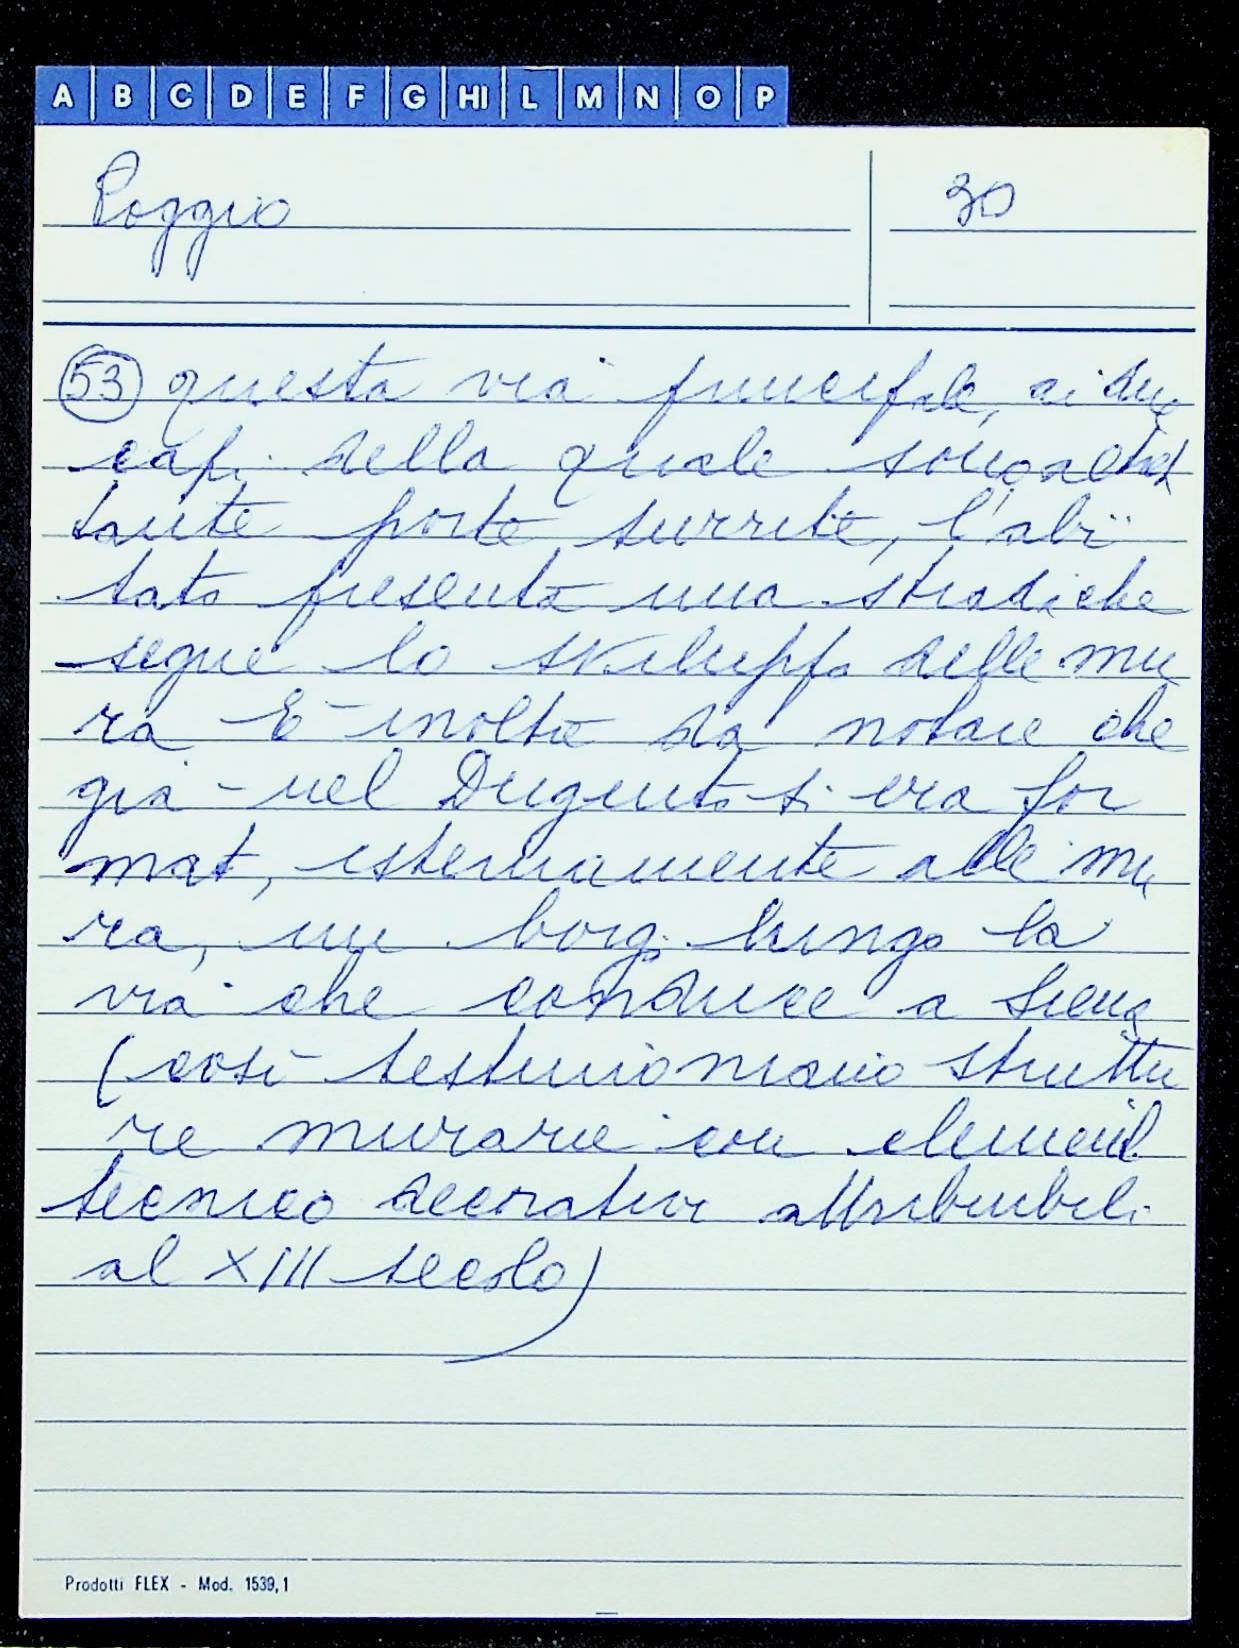 A B C D E F G HI L M N O P
Poggio 30
53 questa via principale, ai due
capi della quale sono
tante porte turrite, l'abi
tato presenta una strada che
segue lo sviluppo delle mu
ra È inoltre da notare che
già nel Dugento si era for
mato, esternamente alle mu
ra, un borgo lungo la
via che conduce a Siena
(così testimoniano struttu
re murarie con elementi
tecnico decorativi attribuibili
al XIII secolo)
Prodotti FLEX - Mod. 1539,1